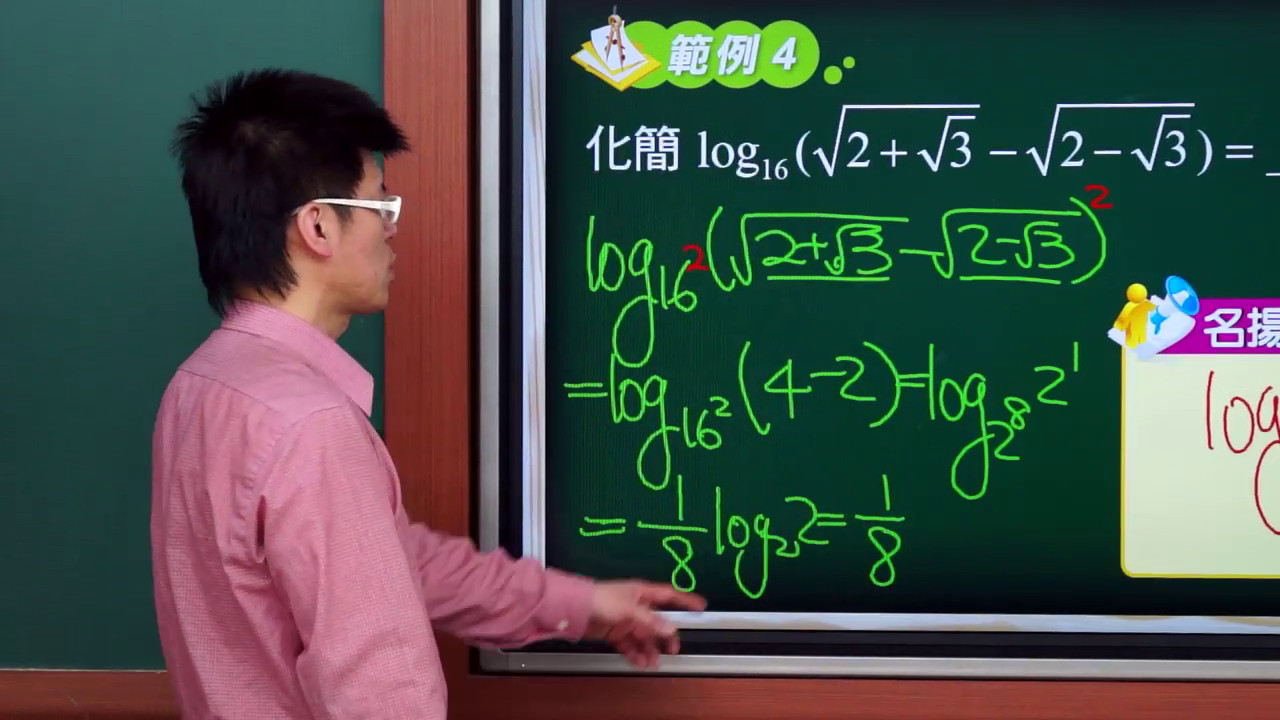 範例 4
化簡 log₁₆(√(2+√3) − √(2−√3)) = _
log₁₆²(√(2+√3) − √(2−√3))²
= log₁₆²(4−2) = log₂⁸ 2¹
= 1/8 log₂ 2 = 1/8
名揚
log